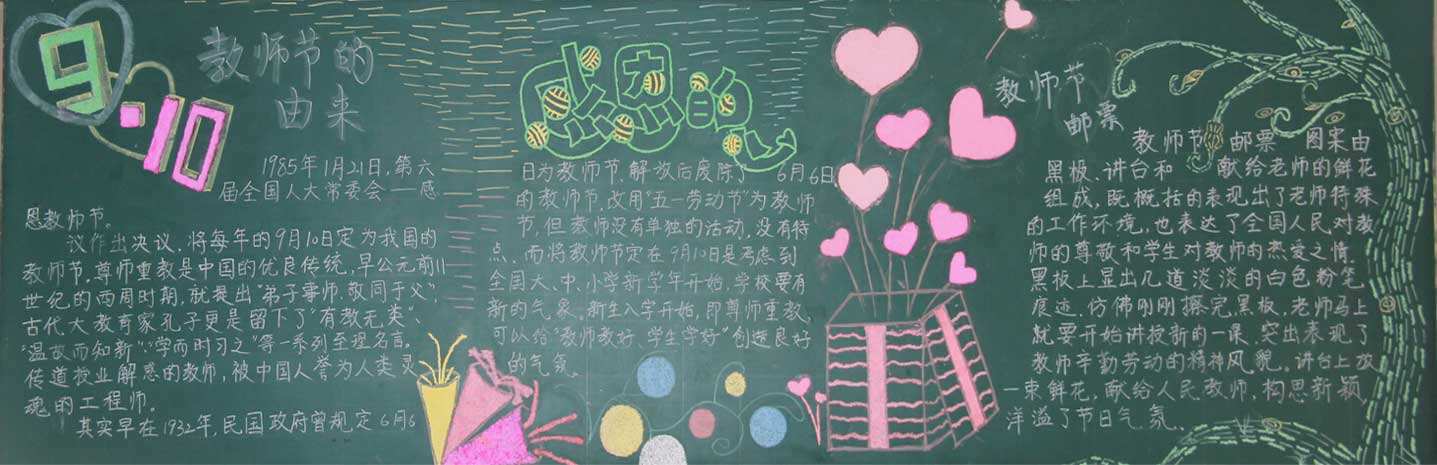 9·10
教师节的
由来
1985年1月21日,第六
届全国人大常委会——感
恩教师节。
议作出决议,将每年的9月10日定为我国的
教师节,尊师重教是中国的优良传统,早公元前11
世纪的西周时期,就提出"弟子事师,敬同于父",
古代大教育家孔子更是留下了"有教无类"、
"温故而知新"、"学而时习之"等一系列至理名言。
传道授业解惑的教师,被中国人誉为人类灵
魂的工程师。
其实早在1932年,民国政府曾规定6月6
感恩的心
日为教师节,解放后废除了6月6日
的教师节,改用"五一劳动节"为教师
节,但教师没有单独的活动,没有特
点、而将教师节定在9月10日是考虑到
全国大、中、小学新学年开始,学校要有
新的气象。新生入学开始,即尊师重教,
可以给"教师教好、学生学好"创造良好
的气氛。
教师节
邮票
教师节 邮票 图案由
黑板、讲台和 献给老师的鲜花
组成,既概括的表现出了老师特殊
的工作环境,也表达了全国人民对教
师的尊敬和学生对教师的热爱之情.
黑板上显出几道淡淡的白色粉笔
痕迹.仿佛刚刚擦完黑板,老师马上
就要开始讲授新的一课.突出表现了
教师辛勤劳动的精神风貌。讲台上放
一束鲜花,献给人民教师,构思新颖,
洋溢了节日气氛.